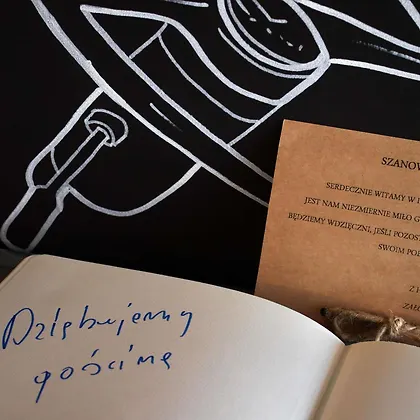 SZANOW
SERDECZNIE WITAMY W
JEST NAM NIEZMIERNIE MIŁO G
BĘDZIEMY WDZIĘCZNI, JEŚLI POZOST
SWOIM
Z
Dziękujemy
gościnę